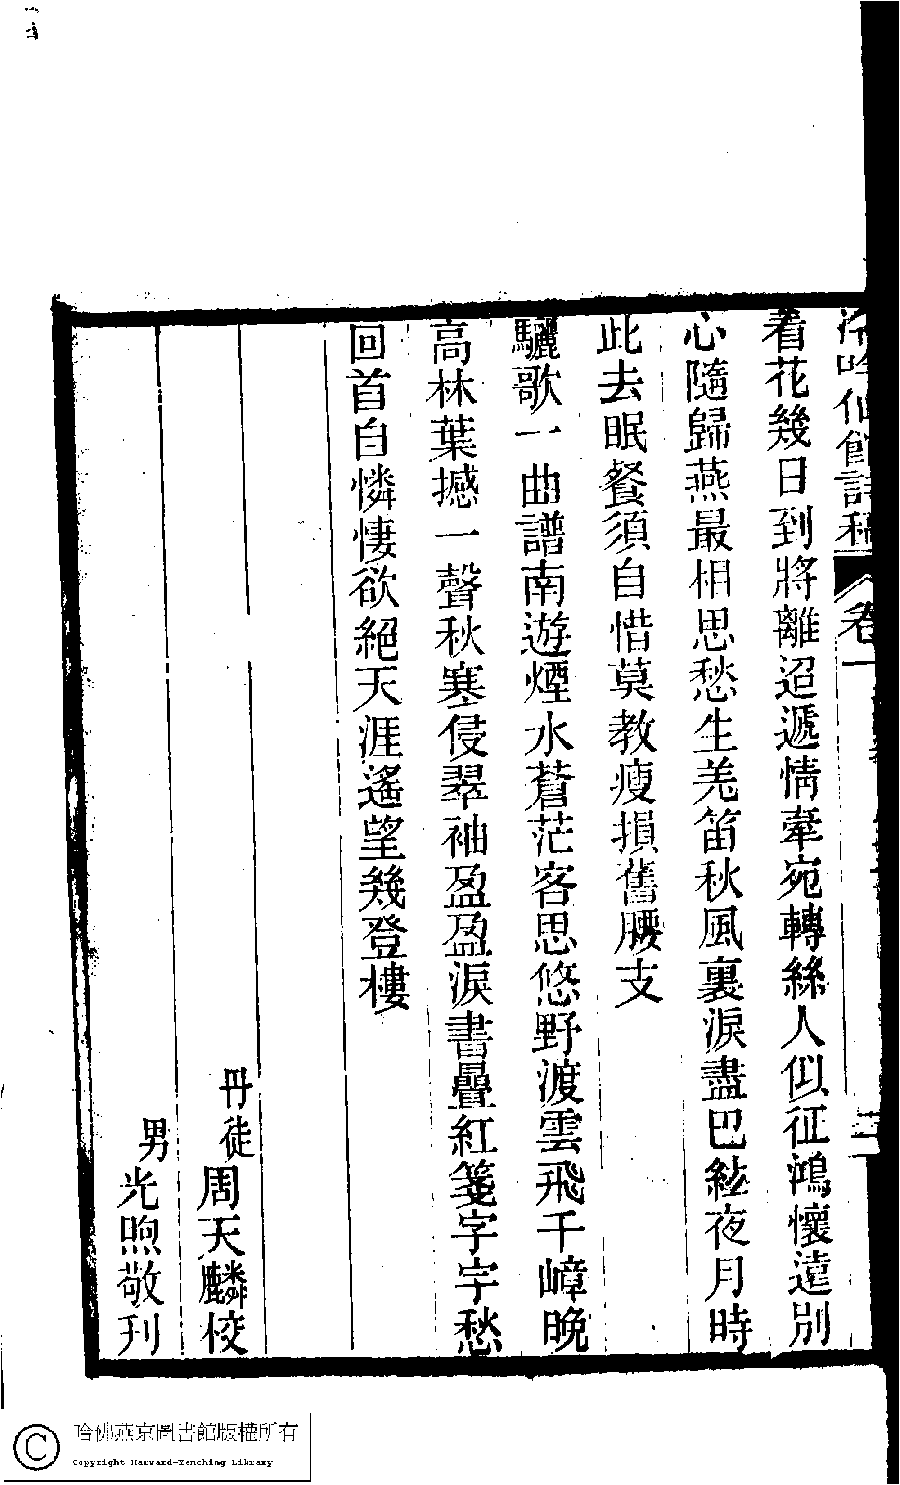 冷吟仙館詩稿 卷一
看花幾日到將離迢遞情牽宛轉絲人似征鴻懷遠別
心隨歸燕最相思愁生羌笛秋風裏淚盡巴紗夜月時
此去眠餐須自惜莫教瘦損舊腰支
驪歌一曲譜南遊煙水蒼茫客思悠野渡雲飛千嶂晚
高林葉撼一聲秋寒侵翠袖盈盈淚書疊紅箋字字愁
回首自憐悽欲絕天涯遙望幾登樓
丹徒周天麟校
男光煦敬刊
哈佛燕京圖書館版權所有
Copyright Harvard-Yenching Library